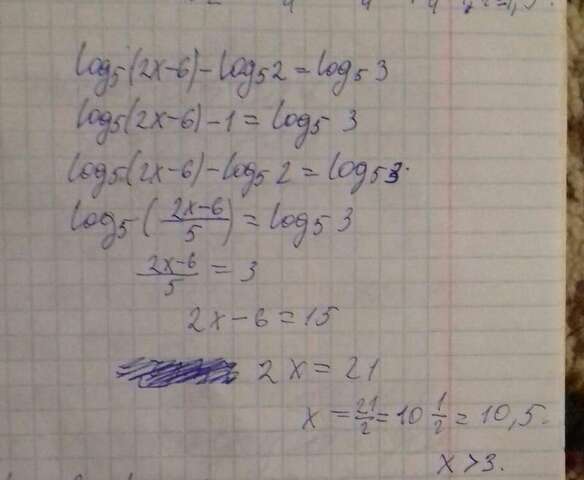 log₅(2x-6)-log₅2=log₅3
log₅(2x-6)-1=log₅3
log₅(2x-6)-log₅2=log₅3.
log₅(\frac{2x-6}{5})=log₅3
\frac{2x-6}{5}=3
2x-6=15
2x=21
x=\frac{21}{2}=10\frac{1}{2}=10,5.
x>3.